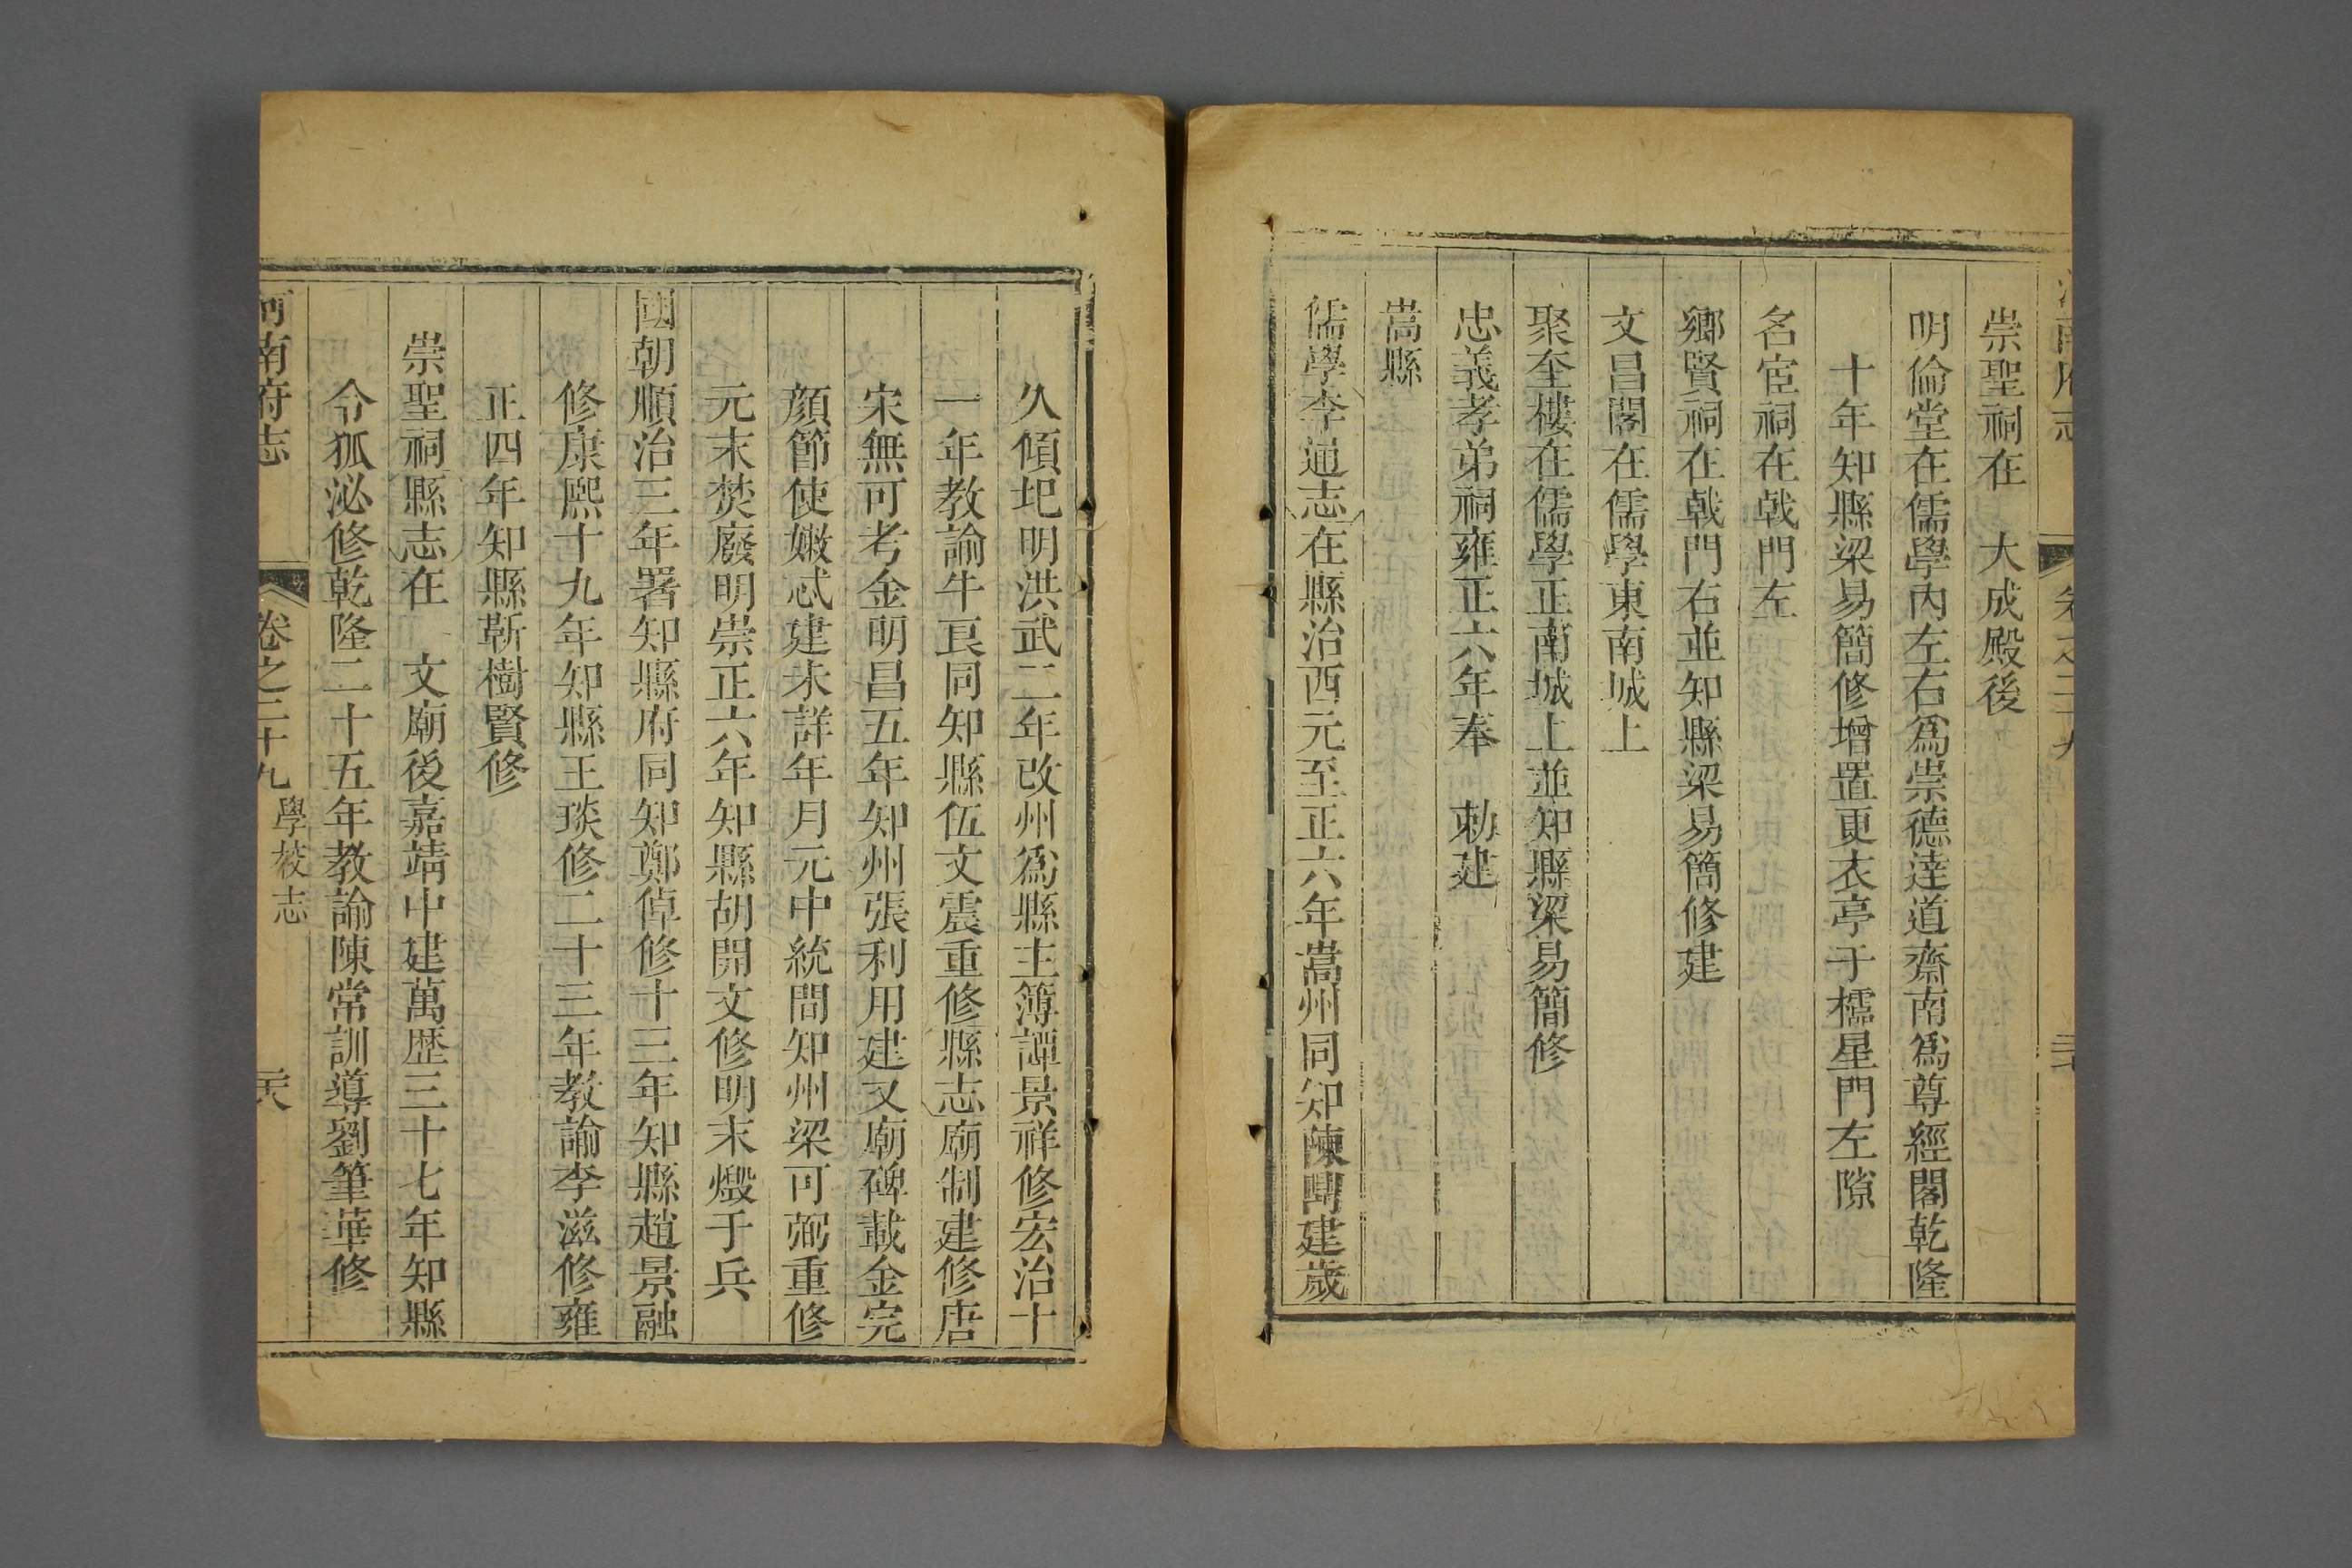 崇聖祠在 大成殿後
明倫堂在儒學內左右爲崇德逹道齋南爲尊經閣乾隆
十年知縣梁易簡修增置更衣亭于櫺星門左隙
名宦祠在戟門左
鄉賢祠在戟門右並知縣梁易簡修建
文昌閣在儒學東南城上
聚奎樓在儒學正南城上並知縣梁易簡修
忠義孝弟祠雍正六年奉 勅建
嵩縣
儒學李通志在縣治西元至正六年嵩州同知陳建歲
久傾圯明洪武二年改州爲縣主簿譚景祥修宏治十
一年教諭牛良同知縣伍文震重修縣志廟制建修唐
宋無可考金明昌五年知州張利用建又廟碑載金完
顔節使嫩忒建未詳年月元中統間知州梁可弼重修
元末焚廢明崇正六年知縣胡開文修明末燬于兵
國朝順治三年署知縣府同知鄭倬修十三年知縣趙景融
修康熙十九年知縣王琰修二十三年教諭李滋修雍
正四年知縣靳樹賢修
崇聖祠縣志在 文廟後嘉靖中建萬歴三十七年知縣
令狐泌修乾隆二十五年教諭陳常訓導劉筆華修
河南府志 卷之二十九 學校志